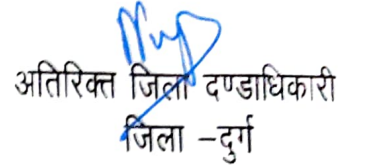 अतिरिक्त जिला दण्डाधिकारी
जिला –दुर्ग